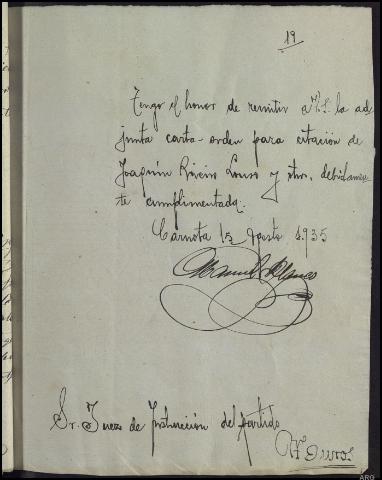 19
Tengo el honor de remitir a V.S. la ad-
junta carta-orden para citación de
Joaquín Riveiro Louro y otro, debidamen-
te cumplimentada.
Carnota 15 Agosto 1.935
Manuel Blanco
Sr. Juez de Instrucción del partido
Muros
ARG